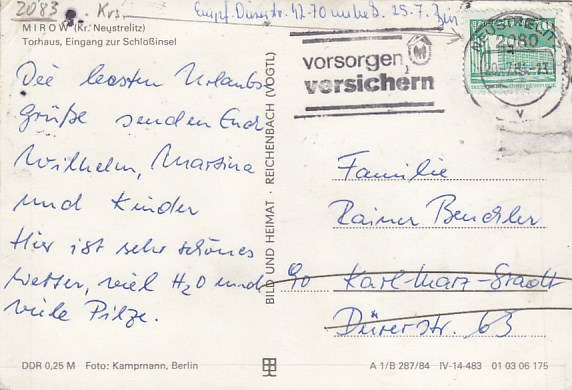 2083 Krs.
Empf. Dürerstr. 42-70 unbek. 25.7.
MIROW (Kr. Neustrelitz)
Torhaus, Eingang zur Schloßinsel
vorsorgen,
versichern
NEUSTRELITZ
2080
Die besten Urlaubs-
grüße senden Euch
Wilhelm, Martina
und Kinder
Hier ist sehr schönes
Wetter, viel H2O und
viele Pilze.
BILD UND HEIMAT · REICHENBACH (VOGTL)
Familie
Rainer
90 Karl-Marx-Stadt
Dürerstr. 63
DDR 0,25 M Foto: Kampmann, Berlin
A 1/B 287/84 IV-14-483 01 03 06 175